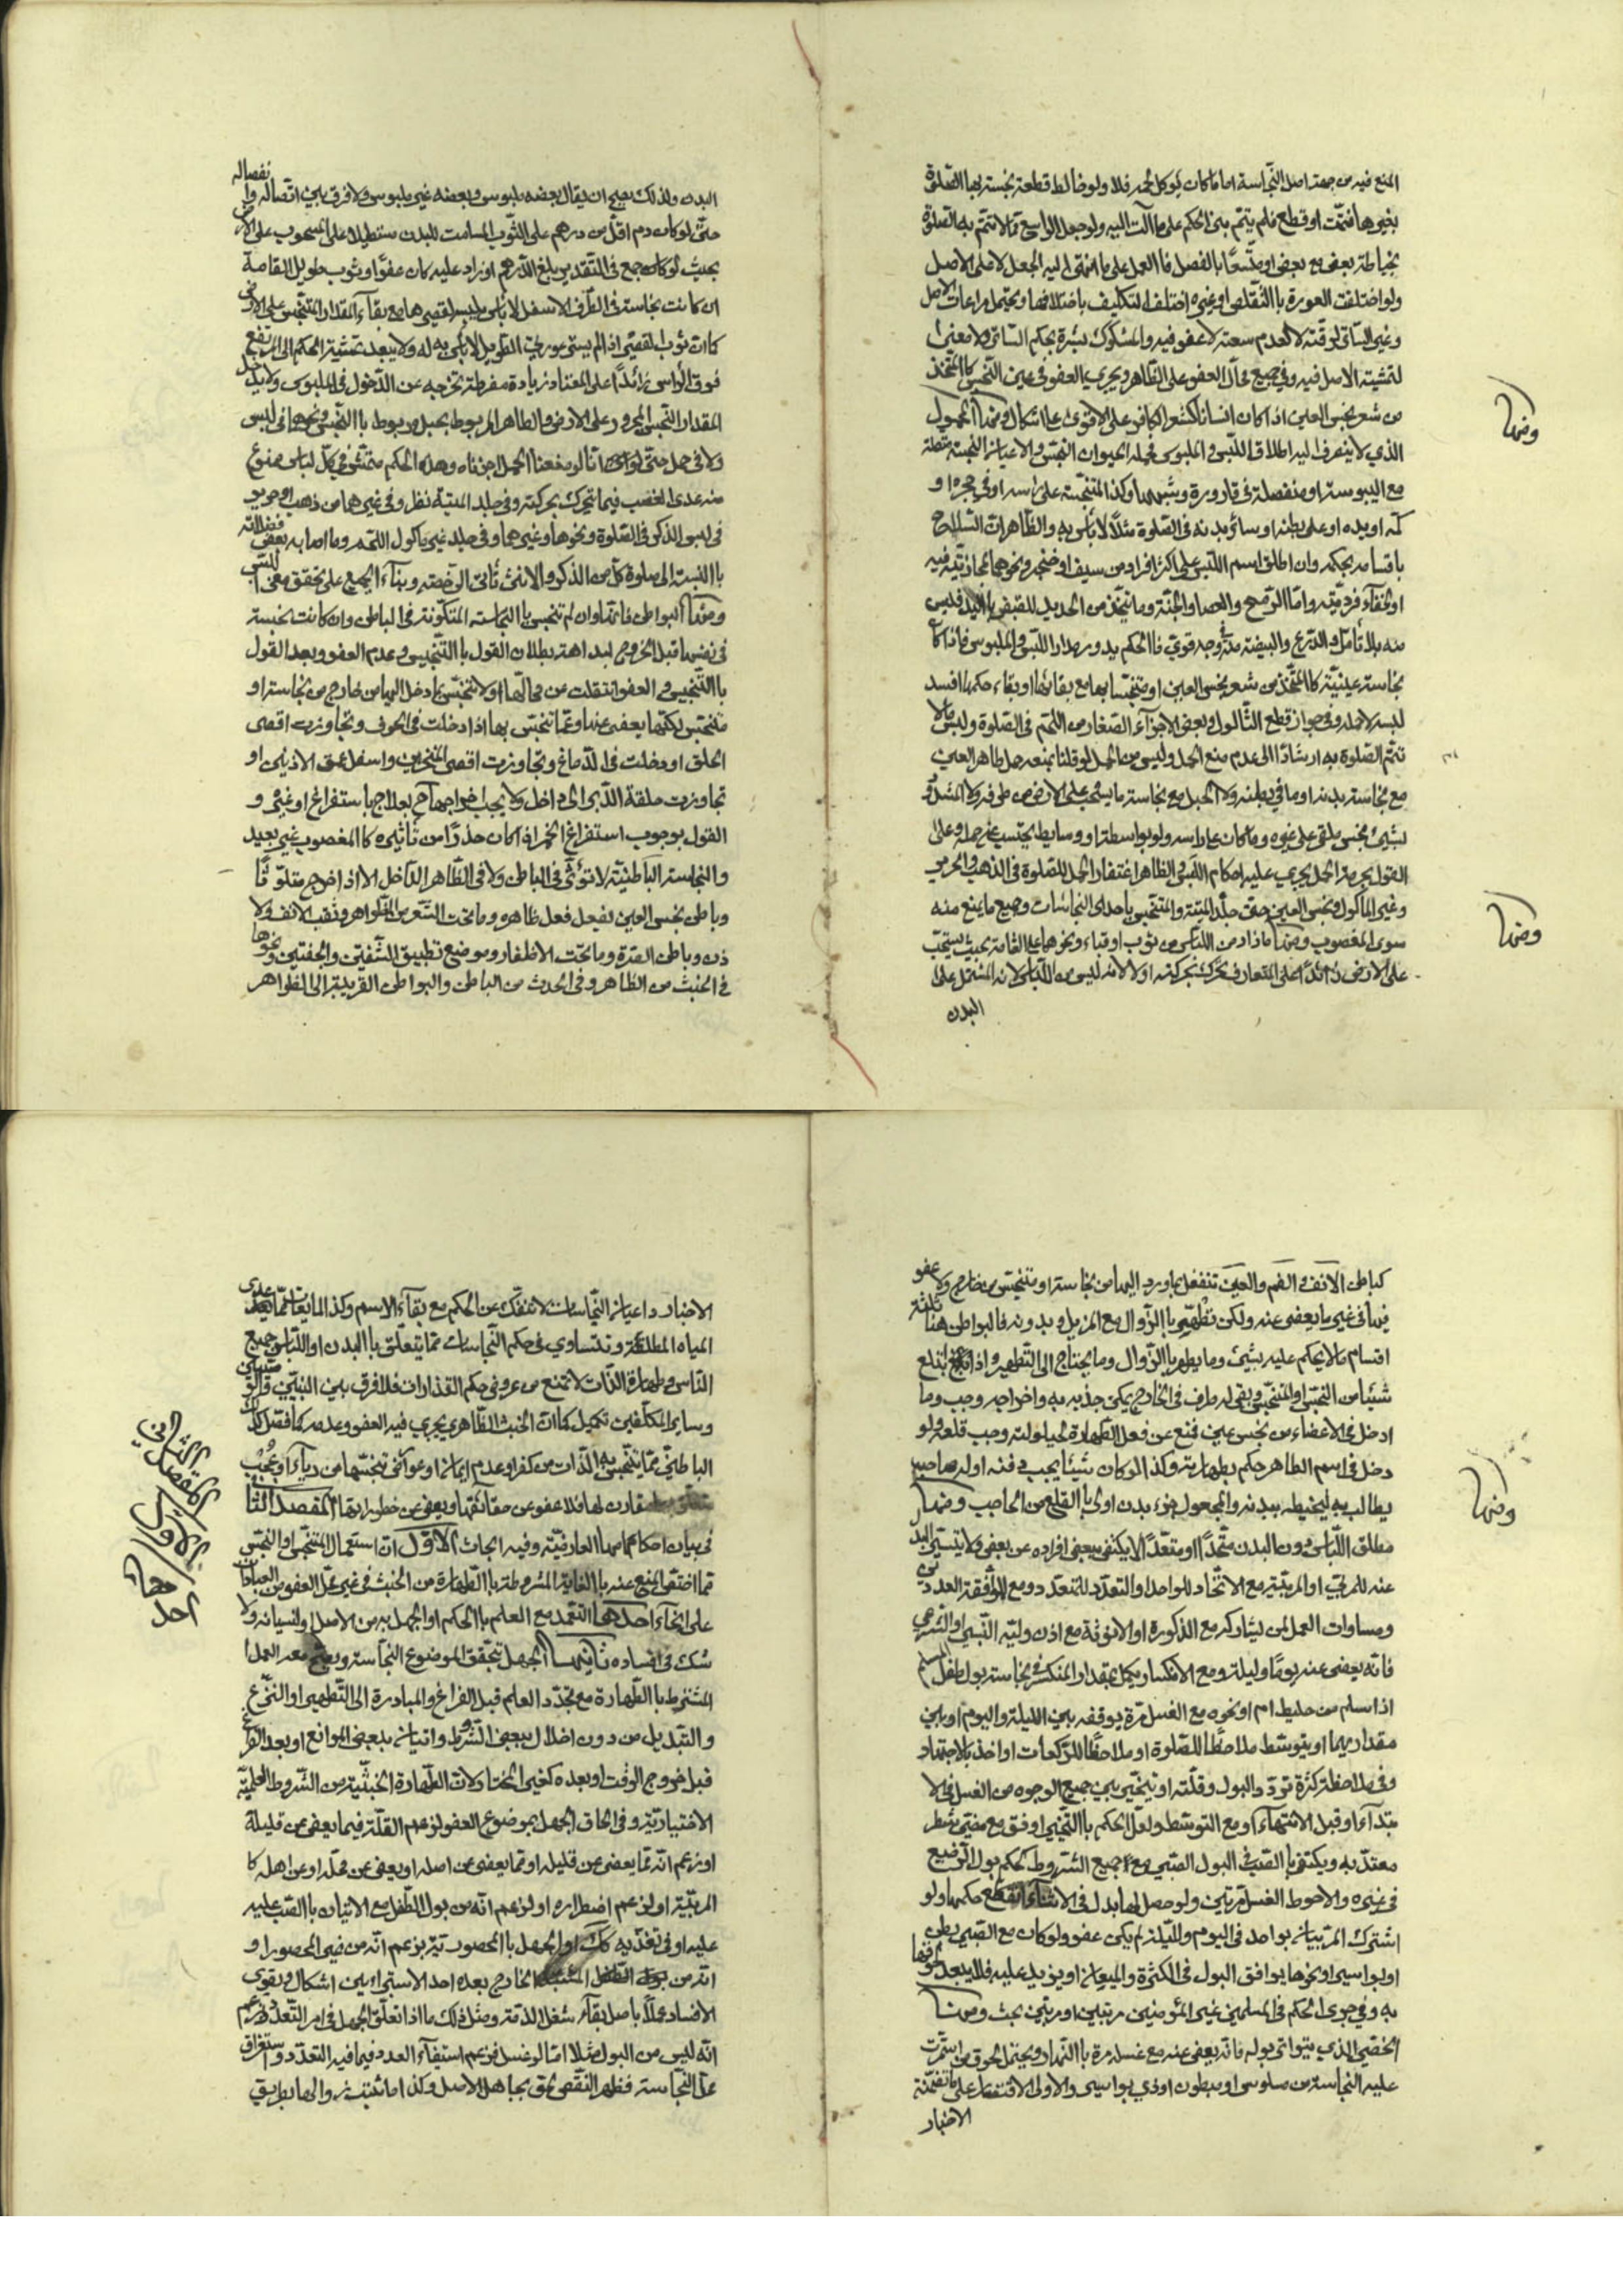 المنع فيه من جهة اصل النجاسة اما ما كان لمأكول لحمه فلا ولو خالط قطعة نجسة بها الصلوة
بغيرها فتمّت او قطع فلم يتمّ بنى الحكم على ما آلت اليه ولو جعل الواسع ممّا لا تتمّ به الصلوة
بخياطة بعض مع بعض او متّسعًا بالفصل فالعمل على ما انتهى اليه الجعل لا على الاصل
ولو اختلفت العورة باالتقلّص او غيره اختلف التكليف باختلافها ويحتمل مراعات الاصل
وغير الساتر لرقّته لا لعدم سعته لا عفو فيه والمشكوك بستره بحكم الساتر ولا معنى
لتمشية الاصل فيه وفي جميع محالّ العفو على الظاهر ويجري العفو في عين النجس كاالمتّخذ
من شعر نجس العين اذا كان انسانا كشعر الكافر على الاقوى على اشكال ومنها المحمول
الذي لا ينصرف اليه اطلاق اللبس والملبوس فحمله الحيوان النجس والاعيان النجسة متصلة
مع اليبوسة او منفصلة في قارورة وشبهها وكذا المتنجسة على راسه او في حجره او
كمّه او يده او على بطنه او سائر بدنه في الصلوة مثلًا لا بأس به والظاهر ان السلاح
باقسامه بحكمه وان اطلق اسم اللبس على اكثر افراده من سيف او خنجر ونحوهما لمجازيّته فيه
او لخفآء فرديّته وامّا الرمح والعصا والجنّة وما يتّخذ من الحديد للقبض باليد فليس
منه بلا تأمّل والدرع والبيضة منه في وجه قويّ فاالحكم يدور مدار اللبس والملبوس فاذا كا
نجاسته عينيّة كاالمتّخذ من شعر نجس العين او متنجّسا بها مع بقائها او بقاء حكمها افسد
لبسه لا حمله وفي جواز قطع الثالول وبعض الاجزآء الصغار من اللحم في الصلوة ولبس ما لا
تتمّ الصلوة به ارشادًا الى عدم منع الحمل وليس من الحمل لو قلنا بمنعه حمل طاهر العين
مع نجاسة بدنه او ما في بطنه ولا الحبل مع نجاسة ما يسحب على الارض من طرفه ولا الشدّ
لشيئ نجس ملقى على غيره وما كان على راسه ولو بواسطة او وسايط يحتسب من حمله وعلى
القول بحرمة الحمل يجري عليه احكام اللبس والظاهر اغتفار الحمل للصلوة في الذهب والحرير
وغير المأكول ونجس العين حتى جلد الميتة والمتنجس باحدى النجاسات وجميع ما يمنع منه
سوى المغصوب ومنها ما زاد من اللباس من ثوب او قباء ونحوهما على القامة بحيث يسحب
على الارض زائدًا على المتعارف تحرّك بحركته او لا لانه ليس من اللباس لانه المشتمل على
البدن
ومنها
ومنها
البدن ولذلك يصحّ ان يقال بعضه ملبوس وبعضه غير ملبوس ولا فرق بين اتّصاله وا
نفصاله
حتّى لو كان دم اقلّ من درهم على الثوب المسامت للبدن مستطيلا على المسحوب على الارض
بحيث لو كان جمع في التقدير بلغ الدرهم او زاد عليه كان عفوًا وثوب طويل القامة
ان كانت نجاسته في الطرف الاسفل لا بأس بلبسه لقصيرها مع بقآء المقدار المتنجس على الارض
كما انّ ثوب القصير اذا لم يستر عورتي الطويل لا بأس به له ولا يبعد تمشية الحكم الى المرتفع
فوق الراس زائدًا على المعتاد زيادة مفرطة تخرجه عن الدخول في الملبوس ولا يدخل
المقدار النجس المجرور على الارض والطاهر المربوط بحبل مربوط باالنجس ونحوهما في لبس
ولا في حمل حتّى لو انّا لو منعنا الحمل اجزناه وهذا الحكم متمشّ في كلّ لباس ممنوع
منه عدى الغصب فيما تحرك بحركته وفي جلد الميتة نظر وفي غيرهما من ذهب او حرير
في لبس الذكر في الصلوة ونحوها وغيرهما وفي جلد غير مأكول اللحم وما اصابه بعض فضلاته
باالنسبة الى صلوة كلّ من الذكر والانثى تأتى الرخصة وبنآء الجميع على تحقّق معنى اللبس
ومنها البواطن فانّها وان لم تنجس باالنجاسة المتكوّنة في الباطن وان كانت نجسة
في نفسها قبل الخروج لبداهة بطلان القول باالتنجيس وعدم العفو وبعد القول
باالتنجيس والعفو انتقلت عن محالّها او لا تتنجّس بما دخل اليها من خارج من نجاسة او
متنجّس لكنّها يعفى عنها وممّا تنجّس بها اذا دخلت في الجوف وتجاوزت اقصى
الحلق او دخلت في الدماغ وتجاوزت اقصى المنخرين واسفل عمق الاذنين او
تجاوزت حلقة الدبر الى داخل ولا يجب اخراجها ح بعلاج باستفراغ او غيره و
القول بوجوب استفراغ الخمر اذا كان حذرًا من تأثيره كاالمغصوب غير بعيد
والنجاسة الباطنيّة لا تؤثّر في الباطن ولا في الظاهر الداخل الا اذا خرج متلوّثًا
وباطن نجس العين يفعل فعل ظاهره وما تحت الشعر من الظواهر وثقب الانف والا
ذن وباطن القترة وما تحت الاظفار وموضع تطبيق الشفتين والجفنين ونحوها
في الخبث من الظاهر وفي الحدث من الباطن والبواطن القريبة الى الظواهر
كباطن الانف والفم والعين تنفعل بما ورد اليها من نجاسة او متنجّس من خارج ولا عفو
فيها في غير ما يعفى عنه ولكن تطهر باالزوال مع المزيل وبدونه فالبواطن هنا ثلثة
اقسام ما لا يحكم عليه بشيئ وما يطهر باالزوال وما يحتاج الى التطهير واذا ابتلع
شيئا من النجس والمتنجّس وبقى له طرف في الخارج يمكن جذبه به واخراجه وجب وما
ادخل في الاعضاء من نجس عين فمنع عن فعل الطهارة لحيلولته وجب قلعه ولو
دخل في اسم الظاهر حكم بطهارته وكذا لو كان شيئا يجب دفنه او له صاحب
يطالب به ليخيطه ببدنه والمجعول جزء بدن اولى باالقلع من الحاجب ومنها
مطلق اللباس دون البدن متّحدًا او متعدّدًا لا يكتفى ببعض افراده عن بعض ولا يتسرّى البدن
عنه للمربّي او المربّية مع الاتّحاد للواحد او التعدّد للمتعدّد ومع الموافقة العددين
ومساوات العمل لمن يشاركه مع الذكورة او الانوثة مع اذن وليّه النسبي او الشرعي
فانّه يعفى عنه يومًا وليلة ومع الانكسار يكمل بمقدار المنكسر في نجاسة بول طفل المسلم
اذا سلم من خليط ام او نحوه مع الغسل مرّة يوقفه بين الليلة واليوم او بين
مقداريهما او بتوسّط ملاحظًا للصلوة او ملاحظًا للركعات او اخذ بالاجتهاد
وفي ملاحظة كثرة تردّد البول وقلّته او تخيير بين جميع الوجوه من الغسل في الا
بتدآء او قبل الانتهآء او مع التوسّط ولعلّ الحكم باالتخيير اوفق مع مضيّ شطر
معتدّ به ويكتفى باالصبّ في البول الصبي مع جميع الشروط كحكم بول الرضيع
في غيره والاحوط الغسل مرتين ولو حصل لها بدل في الاثنآء انقطع حكمها ولو
اشترك المربيان بواحد في اليوم والليلة لم يكن عفو ولو كان مع الصبي بطن
او بواسير او نحوها يوافق البول في الكثرة والميعاد او يزيد عليه فلا يبعد الحوقها
به وفي جري الحكم في المسلمين غير المؤمنين مربّين او مربّيين بحث ومنها
الخصي الذي يتواتر بوله فانه يعفى عنه مع غسله مرة باالنهار ويحتمل لحوق من استمرّت
عليه النجاسة من سلوس او مبطون او ذي بواسير والاولى الاقتصار على ما تضمّنته
الاخبار
ومنها
الاخبار واعيان النجاسات لا تنفكّ عن الحكم مع بقآء الاسم وكذا المايعات ممّا يعدّ عدى
المياه المطلقة وتتساوي في حكم النجاسات ممّا يتعلّق باالبدن او اللباس جميع
الناس وطهارة الذات لا تمنع من عروض حكم القذارات فلا فرق بين النبيّين والوصيّين
وساير المكلّفين تكميل كما انّ الخبث الظاهري يجري فيه العفو وعدمه كما فصّل كذلك
الباطنيّ ممّا تنجّس به الذات من كفر او عدم ايمان او عوارض تنجّسها من ريآء او عُجُب
مقارن لها فلا عفو عن حقائقها ويعفى عن خطراتها المقصد الثا
في بيان احكامها العارضيّة وفيه ابحاث الاوّل انّ استعمال المتنجّس او النجّس
ممّا اختصّ المنع عنه باالغاية المشروطة باالطهارة من الخبث في غير محلّ العفو من العبادات
على انحآء احدها التعمّد مع العلم باالحكم او الجهل به من الاصل او لنسيانه ولا
شك في افساده ثانيها الجهل بتحقّق الموضوع النجاسة ويصحّ معه العمل
المشترط باالطهارة مع تجدّد العلم قبل الفراغ والمبادرة الى التطهير او النزع
والتبديل من دون اخلال ببعض الشروط واتيان ببعض الموانع او بعد الفراغ
قبل خروج الوقت او بعده كغير المختار لانّ الطهارة الخبثيّة من الشروط العلميّة
الاختياريّة وفي الحاق الجهل بموضوع العفو لزعم القلّة فيما يعفى عن قليله
او زعم انّه ممّا يعفى عن قليله او ممّا يعفى عن اصله او يعفى عن محلّه او عن اهله كا
المربّية او لزعم اضطراره او لزعم انّه من بول الطفل مع الاتيان باالصبّ عليه
عليه او في تغذّيه كك او الجهل باالمحصوريّة بزعم انّه من غير المحصور او
انّه من المشتبه الخارج بعده احد الاستبرائين اشكال ويقوى
الافساد عملاً باصل بقآء شغل الذمّة ومثل ذلك ما اذا تعلّق الجهل في امر التعدّد فزعم
انّه ليس من البول مثلا امّا لو غسل فزعم استيفآء العدد فيما فيه التعدّد واستغراق
محلّ النجاسة فظهر النقص لحق بجاهل الاصل وكذا اما ثبت زوالها بطريق
المقصد الثاني